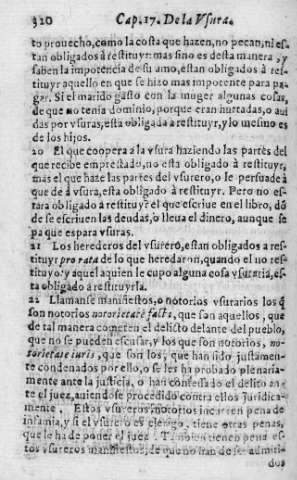 320 Cap. 17. De la Vsura.
to prouecho, como la costa que hazen, no pecan, ni es-
tan obligados à restituyr: mas sino es desta manera, y
saben la impotencia de su amo, estan obligados à res-
tituyr aquello en que se hizo mas impotente para pa-
gar. Si el marido gastò con la muger algunas cosas,
de que no tenia dominio, porque eran hurtadas, o aui
das por vsuras, està obligada à restituyr, y lo mesmo es
de los hijos.
20 El que coopera a la vsura haziendo las partes del
que recibe emprestado, no està obligado à restituyr,
mas el que haze las partes del vsurero, o le persuade à
que dè à vsura, està obligado à restituyr. Pero no es-
tarà obligado à restituyr el que escriue en el libro, dõ
de se escriuen las deudas, o lleua el dinero, aunque se
pa que es para vsuras.
21 Los herederos del vsurero, estan obligados a res-
tituyr pro rata de lo que heredaron, quando el no res-
tituyo: y aquel a quien le cupo alguna cosa vsuraria, es-
ta obligado à restituyrla.
22 Llamanse manifiestos, o notorios vsurarios los q̃
son notorios notorietate facti, que son aquellos, que
de tal manera cometen el delicto delante del pueblo,
que no se pueden escusar, y los que son notorios, no-
torietate iuris, que son los, que han sido justamen-
te condenados por ello, o se les ha probado plenaria-
mente ante la justicia, o han confessado el delito an-
te el juez, auiendose procedido contra ellos juridica-
mente. Estos vsureros notorios incurren pena de
infamia, y si el vsurero es clerigo, tiene otras penas,
que le ha de poner el juez. Tambien tienen pena es-
tos vsureros manifiestos, de que no han de ser admiti-
dos